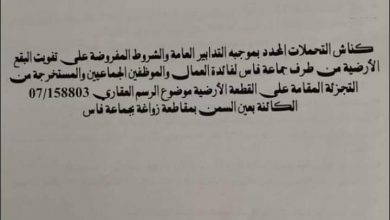 كناش التحملات المحدد بموجبه التدابير العامة والشروط المفروضة على تفويت البقع
الأرضية من طرف جماعة فاس لفائدة العمال والموظفين الجماعيين والمستخرجة من
التجزئة المقامة على القطعة الأرضية موضوع الرسم العقاري 07/158803
الكائنة بعين السمن بمقاطعة زواغة بجماعة فاس